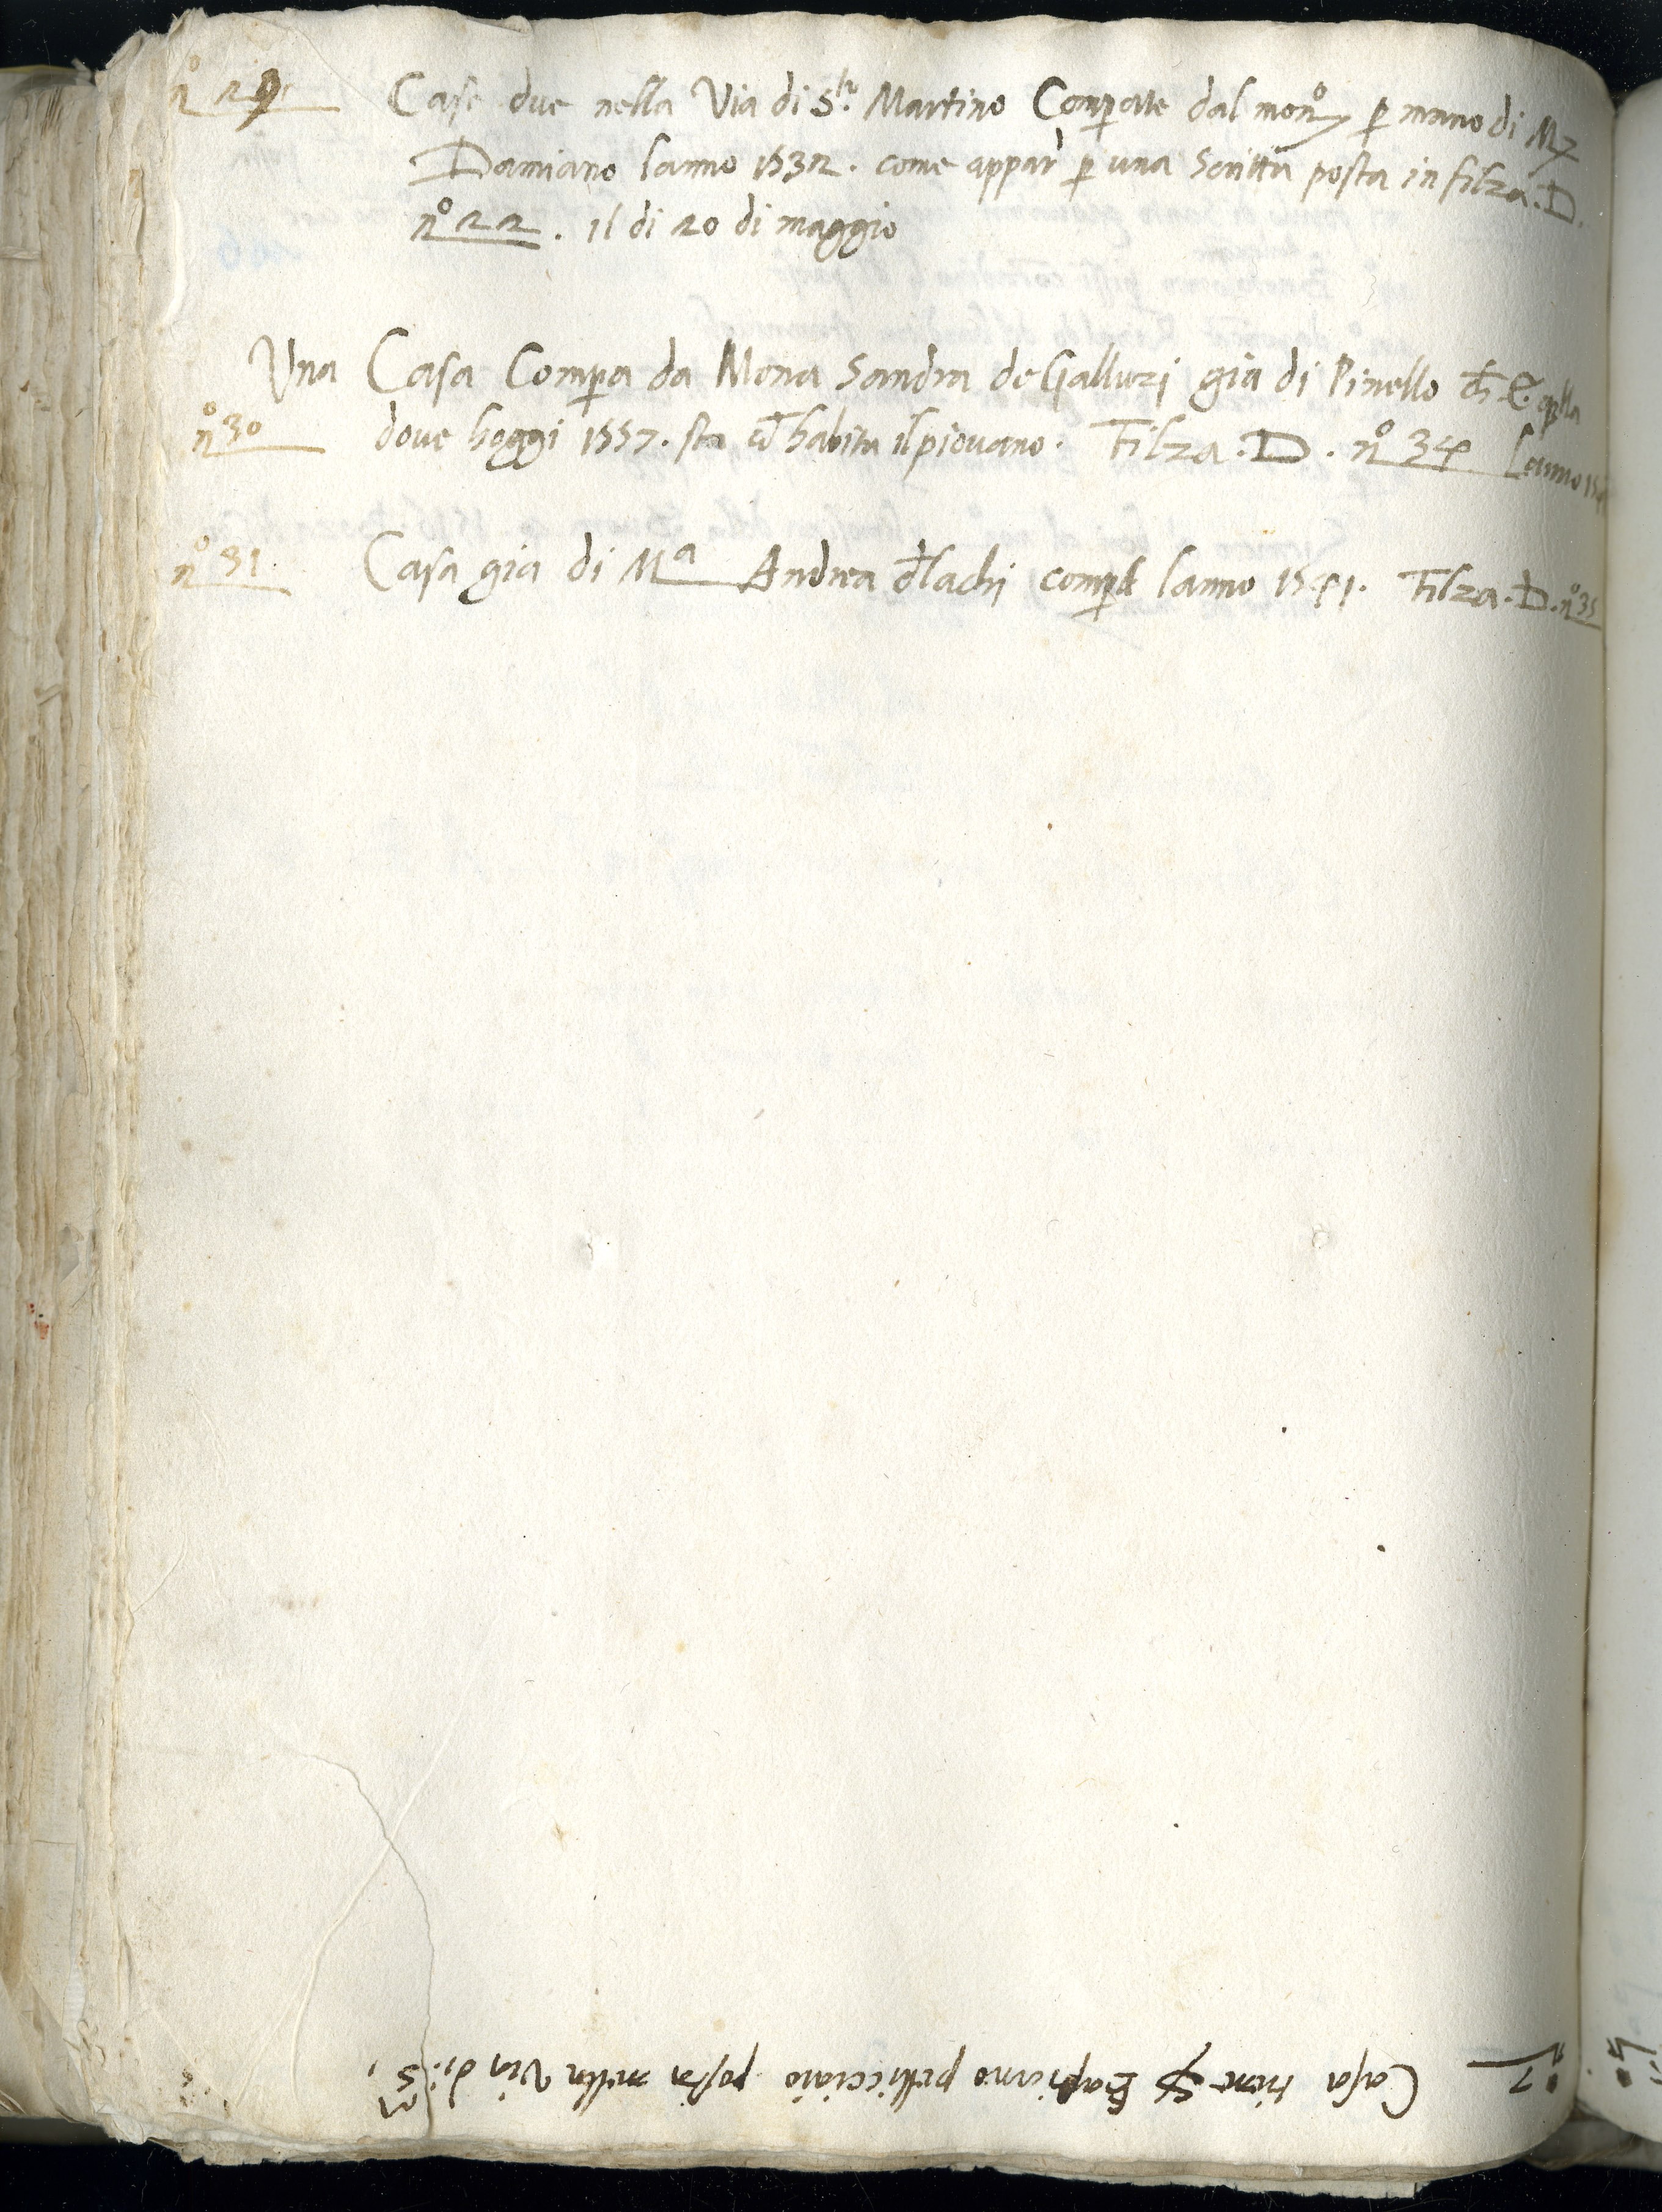 n° 29. Case due nella Via di S.to Martino Comperate dal mon° p mano di M
Damiano lanno 1532. come appar p una Scritta posta in filza. D.
n° 22. il di 20 di maggio
Una Casa Compa da Mona Sandra de Galluzi gia di Pinello
n° 30 dove hoggi 1557. sta habita il piovano. Filza. D. n° 34 lanno
n° 31. Casa gia di Ma Andrea compe lanno 1541. Filza. D. n° 35
n° 7 Casa tiene Bastiano pellicciaio posta nella Via di. S.